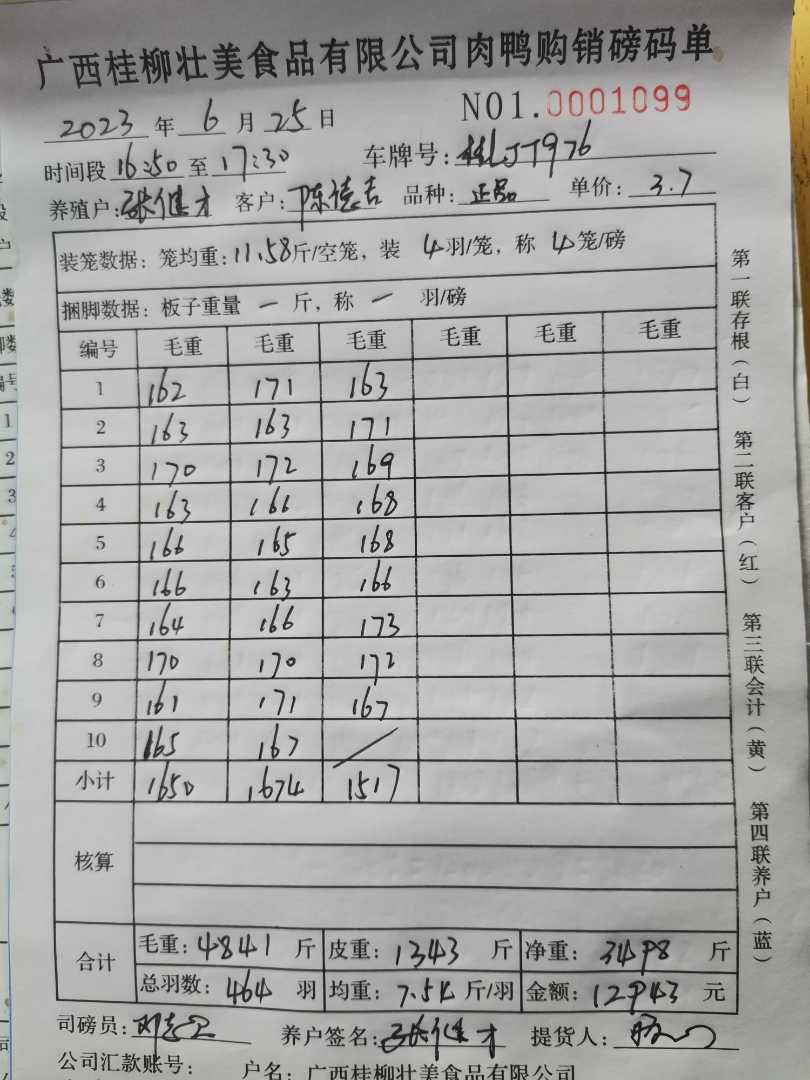 广西桂柳壮美食品有限公司肉鸭购销磅码单
NO1.0001099
2023 年 6 月 25 日
时间段 16:50 至 17:30 车牌号: 桂LJT976
养殖户: 张健才 客户: 陈德吉 品种: 正品 单价: 3.7
装笼数据: 笼均重: 11.58斤/空笼, 装 4羽/笼, 称 4笼/磅
捆脚数据: 板子重量 一 斤, 称 一 羽/磅
编号 毛重 毛重 毛重 毛重 毛重 毛重
1 162 171 163
2 163 163 171
3 170 172 169
4 163 166 168
5 166 165 168
6 166 163 166
7 164 166 173
8 170 170 172
9 161 171 167
10 165 167 /
小计 1650 1674 1517
核算
合计
毛重: 4841 斤 皮重: 1343 斤 净重: 3498 斤
总羽数: 464 羽 均重: 7.54 斤/羽 金额: 12943 元
司磅员: 养户签名: 张健才 提货人:
公司汇款账号: 户名: 广西桂柳壮美食品有限公司
第一联存根(白) 第二联客户(红) 第三联会计(黄) 第四联养户(蓝)